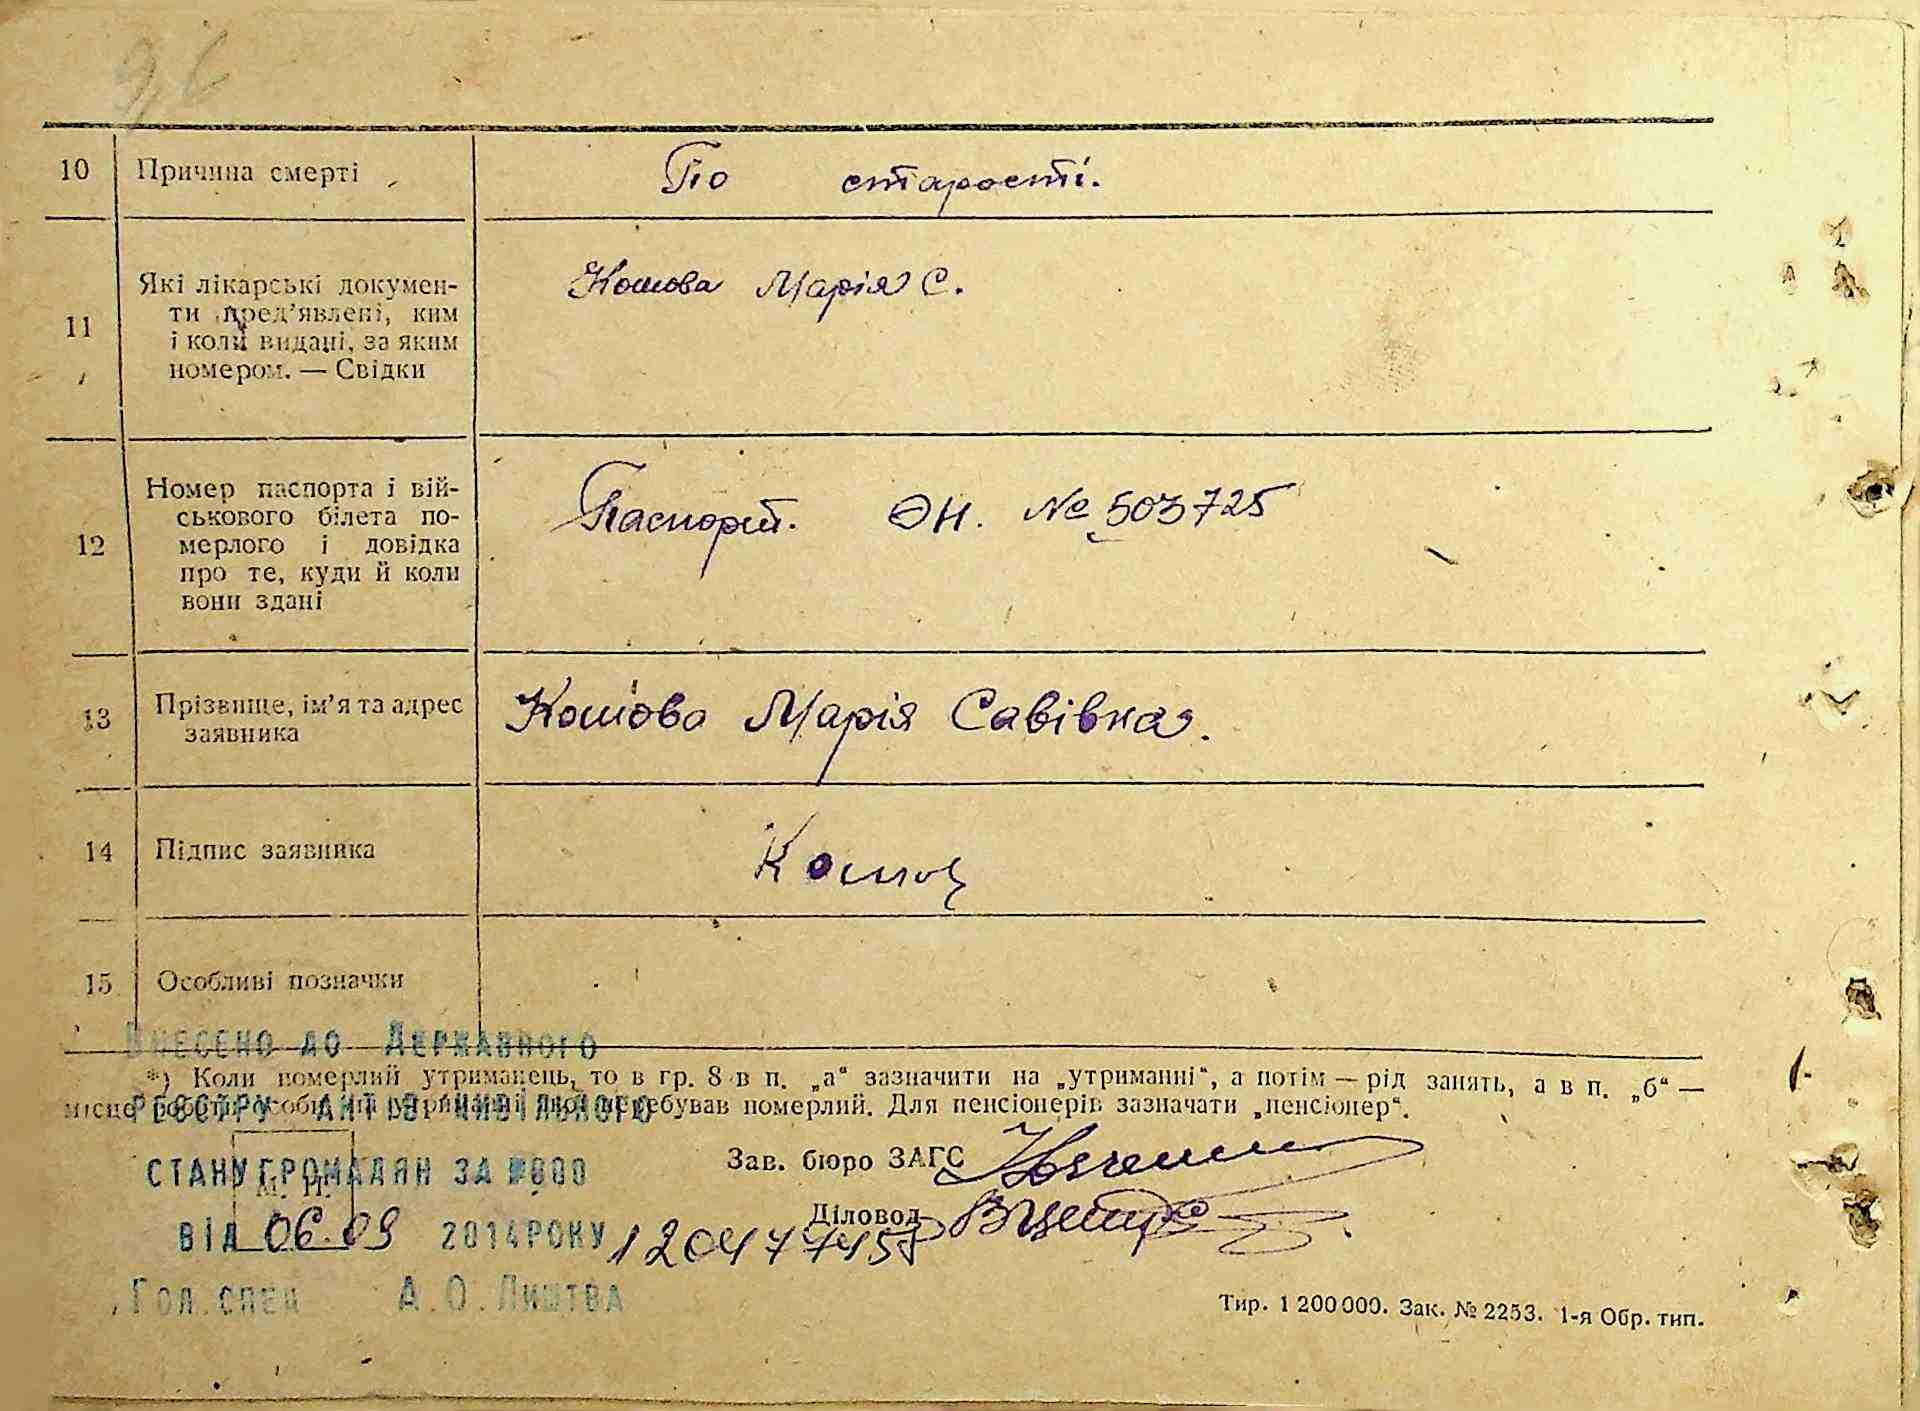 96
10 Причина смерті По старості.
11 Які лікарські докумен-
ти пред’явлені, ким
і коли видані, за яким
номером. — Свідки
Кошова Марія С.
12 Номер паспорта і вій-
ськового білета по-
мерлого і довідка
про те, куди й коли
вони здані
Паспорт. ЭН. № 503725
13 Прізвище, ім’я та адрес
заявника
Кошова Марія Савівна.
14 Підпис заявника Кошов
15 Особливі позначки
Внесено до Державного
*) Коли померлий утриманець, то в гр. 8 в п. „а“ зазначити на „утриманні“, а потім — рід занять, а в п. „б“ —
місце роботи особи, на утриманні якої перебував померлий. Для пенсіонерів зазначати „пенсіонер“.
реєстру актів цивільного
стану громадян за №000
М. П.
Зав. бюро ЗАГС
Діловод
від 06.09 2014 року 1204774
Гол. спец А.О. Лиштва
Тир. 1 200 000. Зак. № 2253. 1-я Обр. тип.